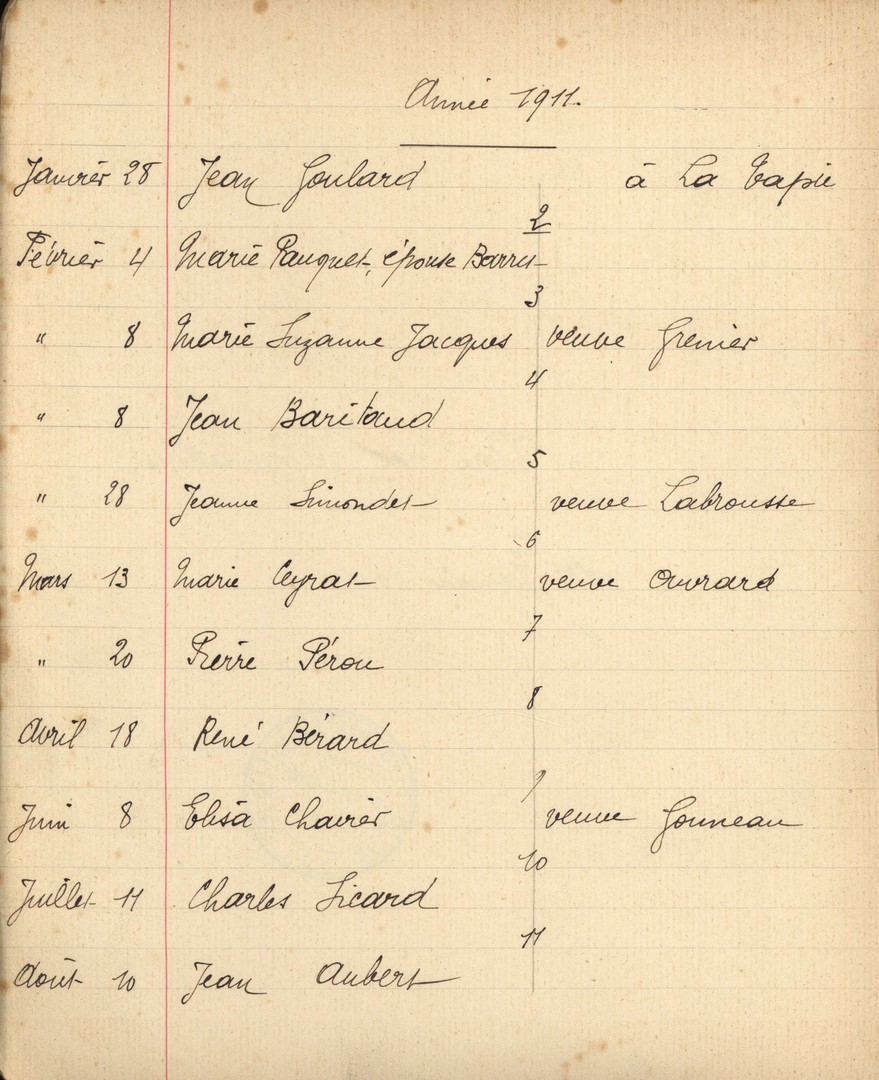 Année 1911.
Janvier 28 Jean Goulard à La Tapie
2
Février 4 Marie Pauquet, épouse Barret
3
" 8 Marie Suzanne Jacques veuve Grenier
4
" 8 Jean Baritaud
5
" 28 Jeanne Simondet veuve Labrousse
6
Mars 13 Marie Ceyrat veuve Ouvrard
7
" 20 Pierre Pérou
8
Avril 18 René Bérard
9
Juin 8 Elisa Chavier veuve Gonneau
10
Juillet 11 Charles Sicard
11
Août 10 Jean Aubert